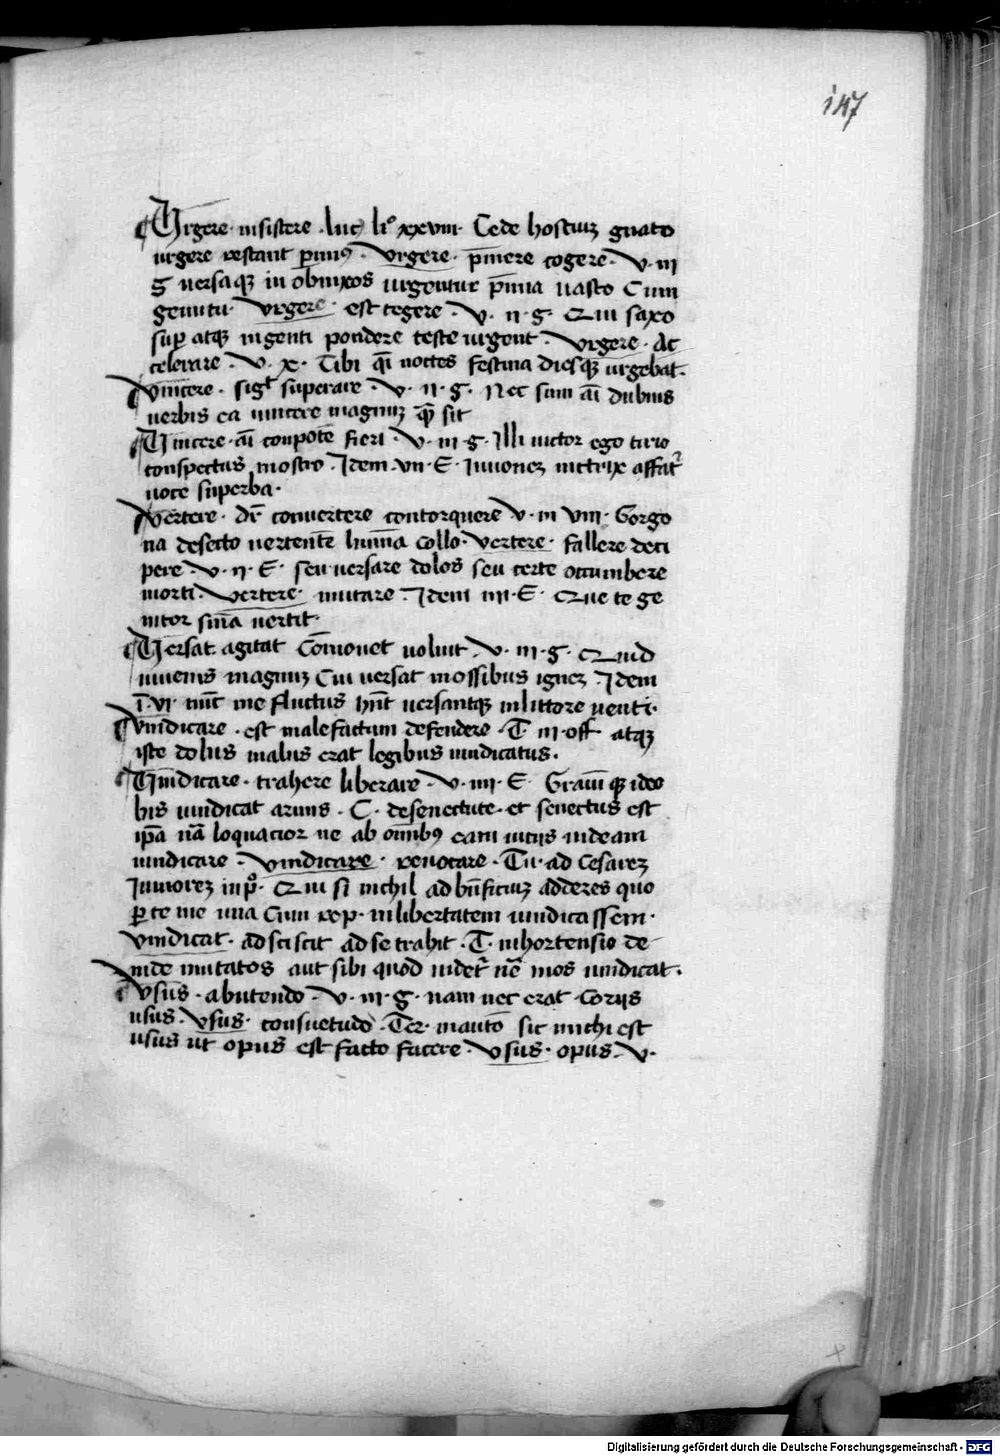 147
Urgere · insistere · luc̄ li° xxviii · Cede hostiuꝫ gnato
urgere restant ꝑim⁹ · Urgere · p̄mere cogere · V · iii
G versaqꝫ in obnixos urgentur p̄mia vasto Cum
gemitu · Urgere · est tegere · V · ii · G · Qui saxo
suꝑ atqꝫ ingenti pondere teste urgent · Urgere · Ac
celerare · V · X · Tibi qī noctes festina diesqꝫ urgebat ·
Vincere · sigt̄ superare · V · ii · G · Nec sum aī dubius
verbis ea vincere magnuꝫ qꝫ̄ sit
Vincere · aī conpotē fieri · V · iii · G · Illi victor ego tirio
conspectus in ostro · Idem vii · E · Iunoneꝫ victrix affat᷑
voce superba ·
Vertere · dr̄ convertere contorquere V · in viii · Gorgo
na desecto vertentē lumīa collo · Vertere · fallere deci
pere · V · ii · E · seu versare dolos seu certe occumbere
morti · Vertere · mutare · Idem iiii · E · Que te ge
nitor sn̄ia vertit ·
Versat agitat Cōmovet volvit · V · iii · G · Quid
iuvenis magnuꝫ Cui versat in ossibus igneꝫ · Idem
ī · vi · nūc me fluctus hn̄t versantqꝫ in littore venti ·
Vindicare · est malefactum defendere · T · iii · off atqꝫ
iste dolus malus erat legibus vindicatus ·
Vindicare · trahere liberare · V · iiii · E · Graviī qꝫ ideo
bis vindicat aruns · C · de senectute · et senectus est
ip̄a nā loquacior ne ab om̄ibꝯ eam vitiis videam
vindicare · Vindicare · revocare · Tu · ad Cesareꝫ
Iunioreꝫ in p° · Qui si nichil ad bn̄ficiuꝫ adderes quo
ꝑ te me una Cum rep · in libertatem vindicassem ·
Vindicat · adsciscit ad se trahit · T · in hortensio de
inde mutatos aut sibi quod videt᷑ nē mos vindicat ·
Usus · abutendo · V · iii · G · nam nec erat · Coriis
usus · Usus · consuetudo · Ter · in autō sic michi est
usus ut opus est facto facere · Usus · opus · V ·
Digitalisierung gefördert durch die Deutsche Forschungsgemeinschaft - DFG